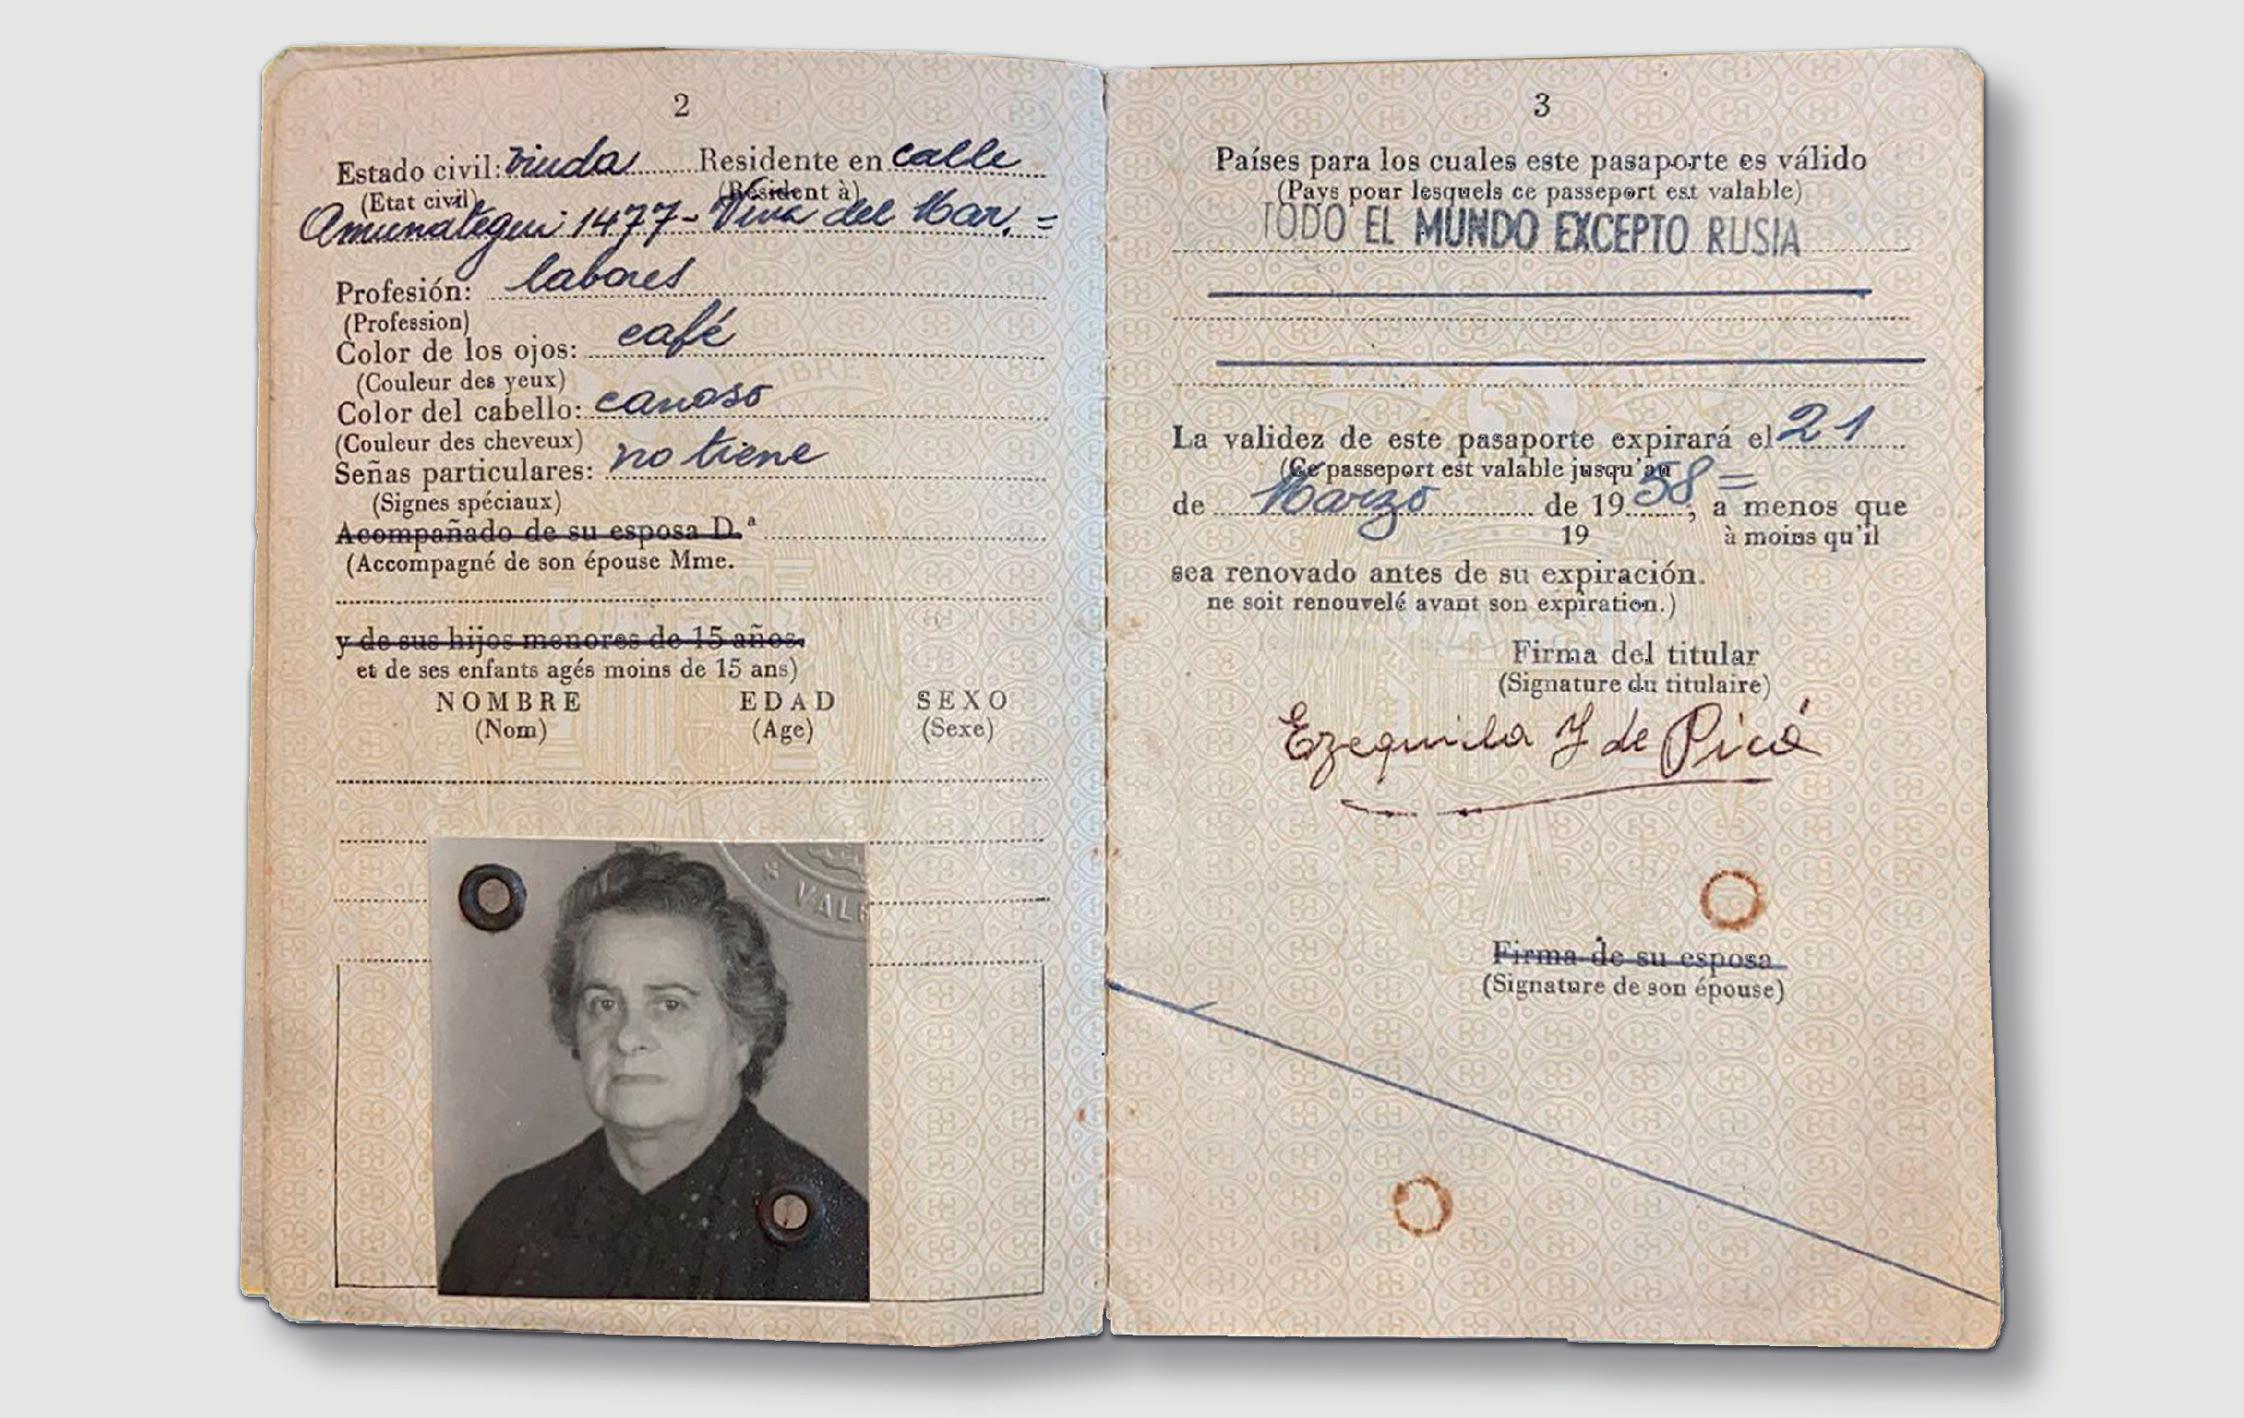 2
Estado civil: viuda Residente en calle
(Etat civil) (Résident à)
Amunategui 1477- Viña del Mar. =
Profesión: labores
(Profession)
Color de los ojos: café
(Couleur des yeux)
Color del cabello: canoso
(Couleur des cheveux)
Señas particulares: no tiene
(Signes spéciaux)
Acompañado de su esposa D.ª
(Accompagné de son épouse Mme.
y de sus hijos menores de 15 años.
et de ses enfants agés moins de 15 ans)
NOMBRE EDAD SEXO
(Nom) (Age) (Sexe)
VAL
3
Países para los cuales este pasaporte es válido
(Pays pour lesquels ce passeport est valable)
TODO EL MUNDO EXCEPTO RUSIA
La validez de este pasaporte expirará el 21
(Ce passeport est valable jusqu'au
de Marzo de 1958=, a menos que
19 à moins qu'il
sea renovado antes de su expiración.
ne soit renouvelé avant son expiration.)
Firma del titular
(Signature du titulaire)
Ezequiela Y de Picó
Firma de su esposa
(Signature de son épouse)